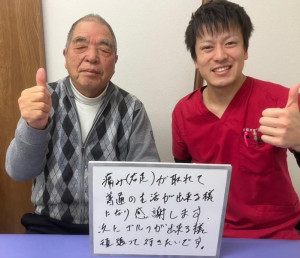 痛み(右足)が取れて
普通の生活が出来る様
になり感謝します。
次は ゴルフが出来る様
頑張って行きたいです。